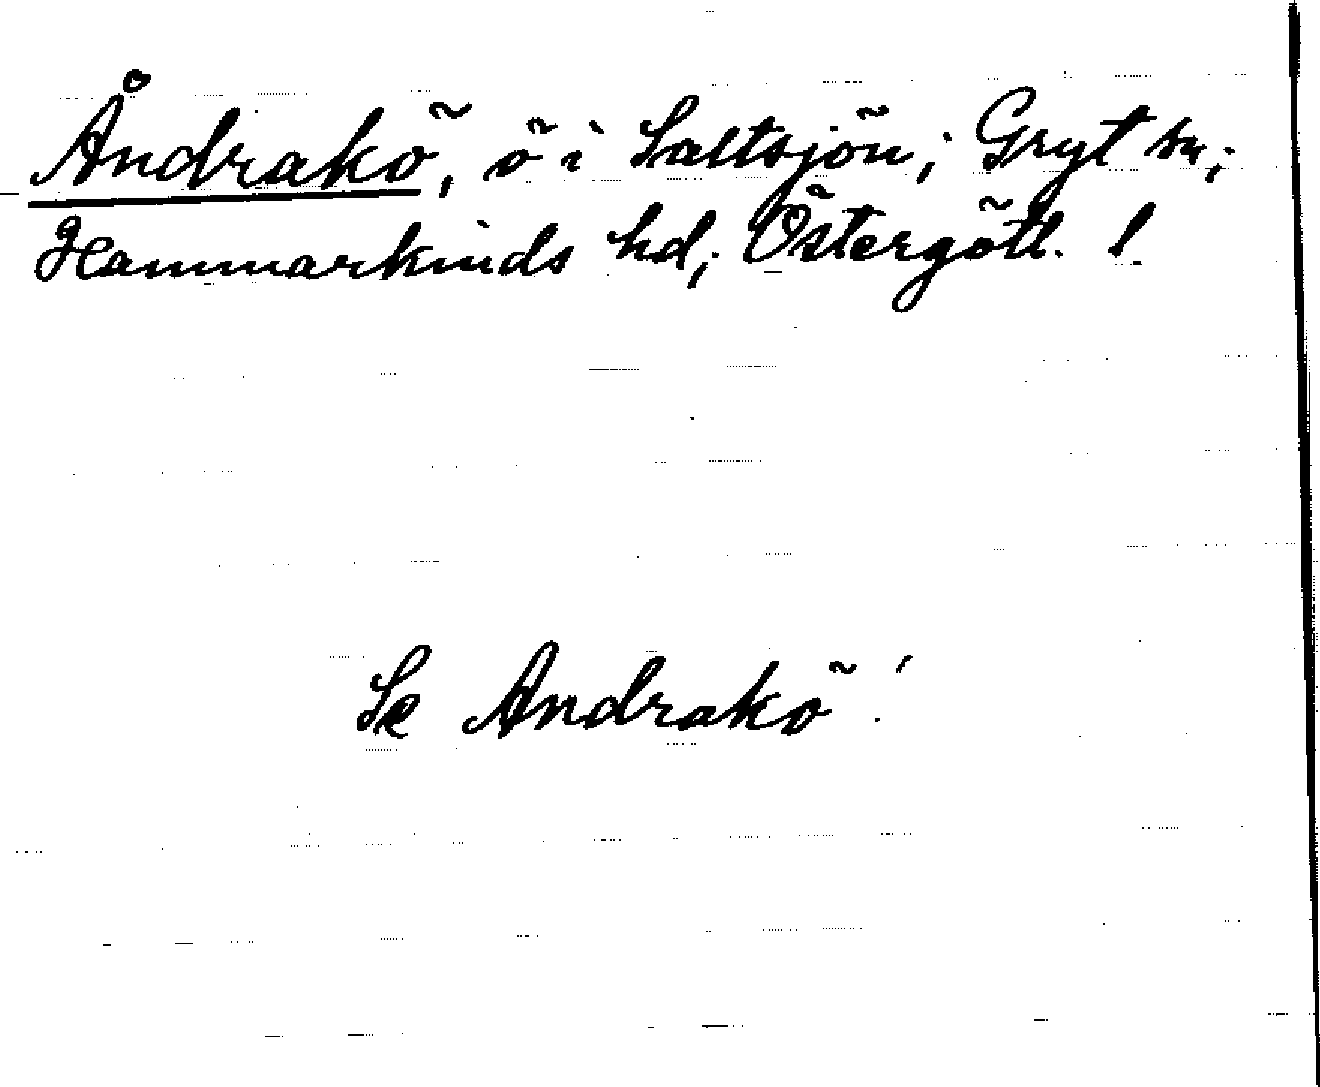 Åndrakö, ö i Saltsjön; Gryt sn;
Hammarkinds hd; Östergötl. l
Se Andrakö!